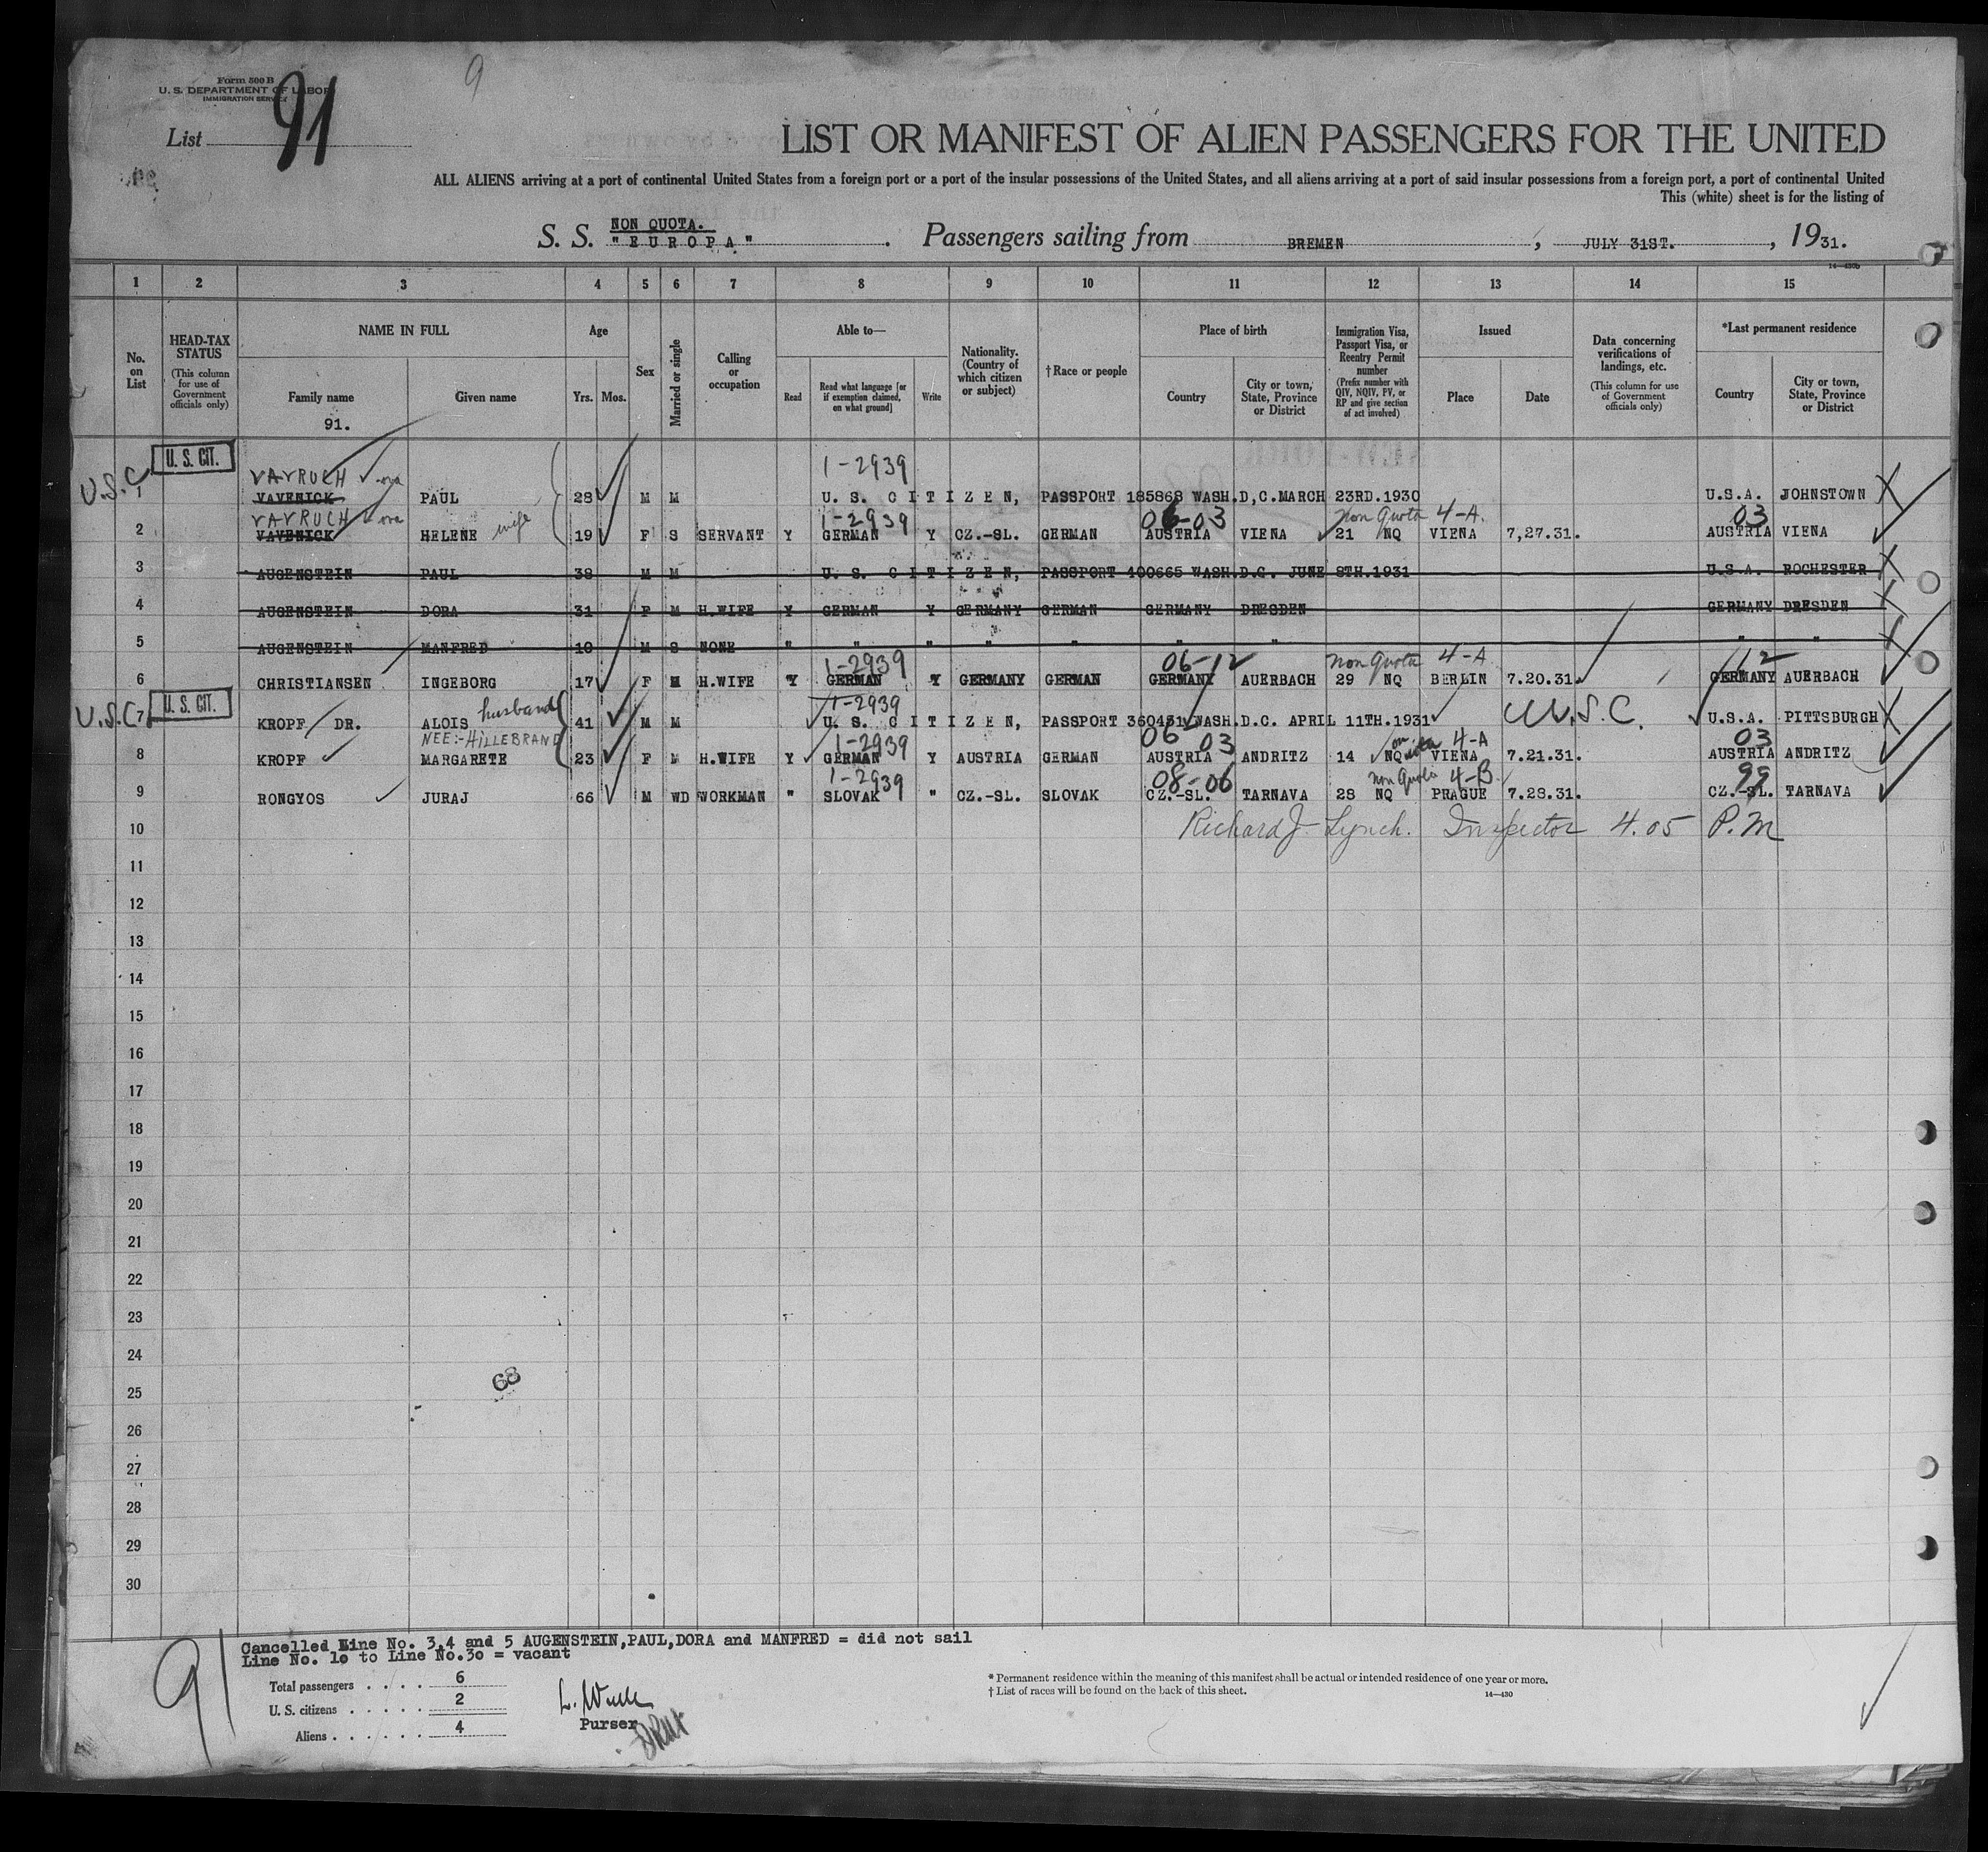 Form 500 B
U. S. DEPARTMENT OF LABOR
IMMIGRATION SERVICE
9
List 91
LIST OR MANIFEST OF ALIEN PASSENGERS FOR THE UNITED
ALL ALIENS arriving at a port of continental United States from a foreign port or a port of the insular possessions of the United States, and all aliens arriving at a port of said insular possessions from a foreign port, a port of continental United
This (white) sheet is for the listing of
NON QUOTA.
S. S. "EUROPA". Passengers sailing from BREMEN, JULY 31ST., 1931.
14—430b
1 2 3 4 5 6 7 8 9 10 11 12 13 14 15
No. on List
HEAD-TAX STATUS (This column for use of Government officials only)
NAME IN FULL Family name Given name
91.
Age Yrs. Mos.
Sex
Married or single
Calling or occupation
Able to— Read Read what language [or if exemption claimed, on what ground] Write
Nationality. (Country of which citizen or subject)
†Race or people
Place of birth Country City or town, State, Province or District
Immigration Visa, Passport Visa, or Reentry Permit number (Prefix number with QIV, NQIV, PV, or RP and give section of act involved)
Issued Place Date
Data concerning verifications of landings, etc. (This column for use of Government officials only)
*Last permanent residence Country City or town, State, Province or District
U. S. CIT.
VAVRUCH ova 1-2939
U.S.C 1 VAVENICK PAUL 28 M M U. S. CITIZEN, PASSPORT 185868 WASH.D,C.MARCH 23RD.1930 U.S.A. JOHNSTOWN
VAVRUCH ova 1-2939 06-03 non quota 4-A. 03
2 VAVENICK HELENE wife 19 F S SERVANT Y GERMAN Y CZ.-SL. GERMAN AUSTRIA VIENA 21 NQ VIENA 7,27.31. AUSTRIA VIENA
3 AUGENSTEIN PAUL 38 M M U. S. CITIZEN, PASSPORT 400665 WASH.D.C. JUNE 8TH.1931 U.S.A. ROCHESTER
4 AUGENSTEIN DORA 31 F M H.WIFE Y GERMAN Y GERMANY GERMAN GERMANY DRESDEN GERMANY DRESDEN
5 AUGENSTEIN MANFRED 10 M S NONE " " " " " " " " "
1-2939 06-12 non quota 4-A 12
6 CHRISTIANSEN INGEBORG 17 F M H.WIFE Y GERMAN Y GERMANY GERMAN GERMANY AUERBACH 29 NQ BERLIN 7.20.31. GERMANY AUERBACH
U. S. CIT.
husband 1-2939
U.S.C. 7 KROPF DR. ALOIS 41 M M U. S. CITIZEN, PASSPORT 360431 WASH.D.C. APRIL 11TH.1931 U.S.C. U.S.A. PITTSBURGH
NEE:-HILLEBRAND 1-2939 06 03 non quota 4-A 03
8 KROPF MARGARETE 23 F M H.WIFE Y GERMAN Y AUSTRIA GERMAN AUSTRIA ANDRITZ 14 NQ VIENA 7.21.31. AUSTRIA ANDRITZ
1-2939 08-06 non quota 4-B 99
9 RONGYOS JURAJ 66 M WD WORKMAN " SLOVAK " CZ.-SL. SLOVAK CZ.-SL. TARNAVA 28 NQ PRAGUE 7.28.31. CZ.-SL. TARNAVA
10 Richard J. Lynch. Inspector 4.05 P.M
11
12
13
14
15
16
17
18
19
20
21
22
23
24
68
25
26
27
28
29
30
91
Cancelled Line No. 3,4 and 5 AUGENSTEIN,PAUL,DORA and MANFRED = did not sail
Line No. 10 to Line No.30 = vacant
Total passengers . . . . 6
U. S. citizens . . . . . 2
Aliens . . . . . . 4
Purser
* Permanent residence within the meaning of this manifest shall be actual or intended residence of one year or more.
† List of races will be found on the back of this sheet.
14—430